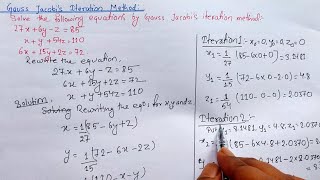 Gauss Jacobi's Iteration Method
Solve the following equations by Gauss Jacobi's iteration method:
27x + 6y - z = 85
x + y + 54z = 110
6x + 15y + 2z = 72
Rewrite the equation.
27x + 6y - z = 85
6x + 15y + 2z = 72
x + y + 54z = 110
Solution. Rewriting the eqns for x, y and z.
x = 1/27 (85 - 6y + z)
y = 1/15 (72 - 6x - 2z)
(110 - x - y)
Iteration 1:- x₀=0, y₀=0, z₀=0
x₁ = 1/27 (85 - 6x0 + 0) = 3.1481
y₁ = 1/15 (72 - 6x0 - 2.0) = 4.8
z₁ = 1/54 (110 - 0 - 0) = 2.0370
Iteration 2:-
Put x₁ = 3.1481, y₁ = 4.8, z₁ = 2.0370
x₂ = (85 - 6x4.8 + 2.0370) =